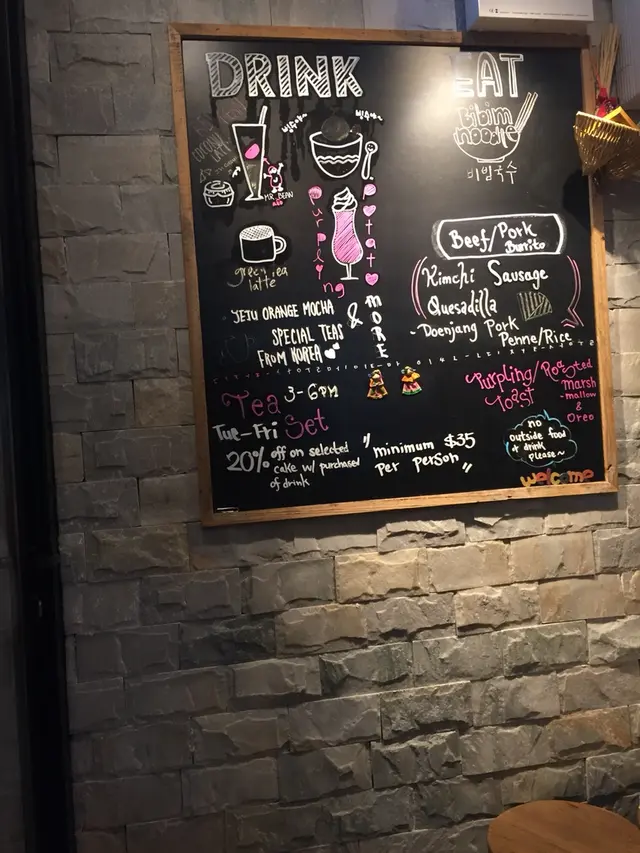 DRINK
빙수~
빙수~
MR. BEAN
green tea
latte
Purpling
Potato
JEJU ORANGE MOCHA
SPECIAL TEAS
FROM KOREA
& MORE
Tea Set
3-6PM
Tue-Fri
20% off on selected
cake w/ purchased
of drink
"minimum $35
per person"
EAT
Bibim
noodle
비빔국수
Beef/Pork
Burito
Kimchi Sausage
Quesadilla
-Doenjang Pork
Penne/Rice
Purpling/Roasted
Toast
Marsh
-mallow
&
Oreo
no
outside food
+ drink
please~
welcome